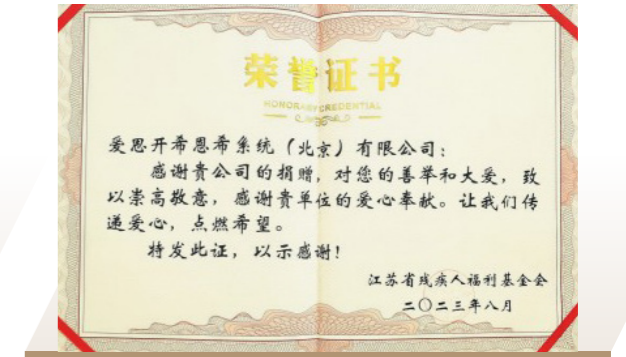 荣誉证书
HONORARY CREDENTIAL
爱思开希恩希系统（北京）有限公司：
感谢贵公司的捐赠，对您的善举和大爱，致
以崇高敬意，感谢贵单位的爱心奉献。让我们传
递爱心，点燃希望。
特发此证，以示感谢！
江苏省残疾人福利基金会
二〇二三年八月